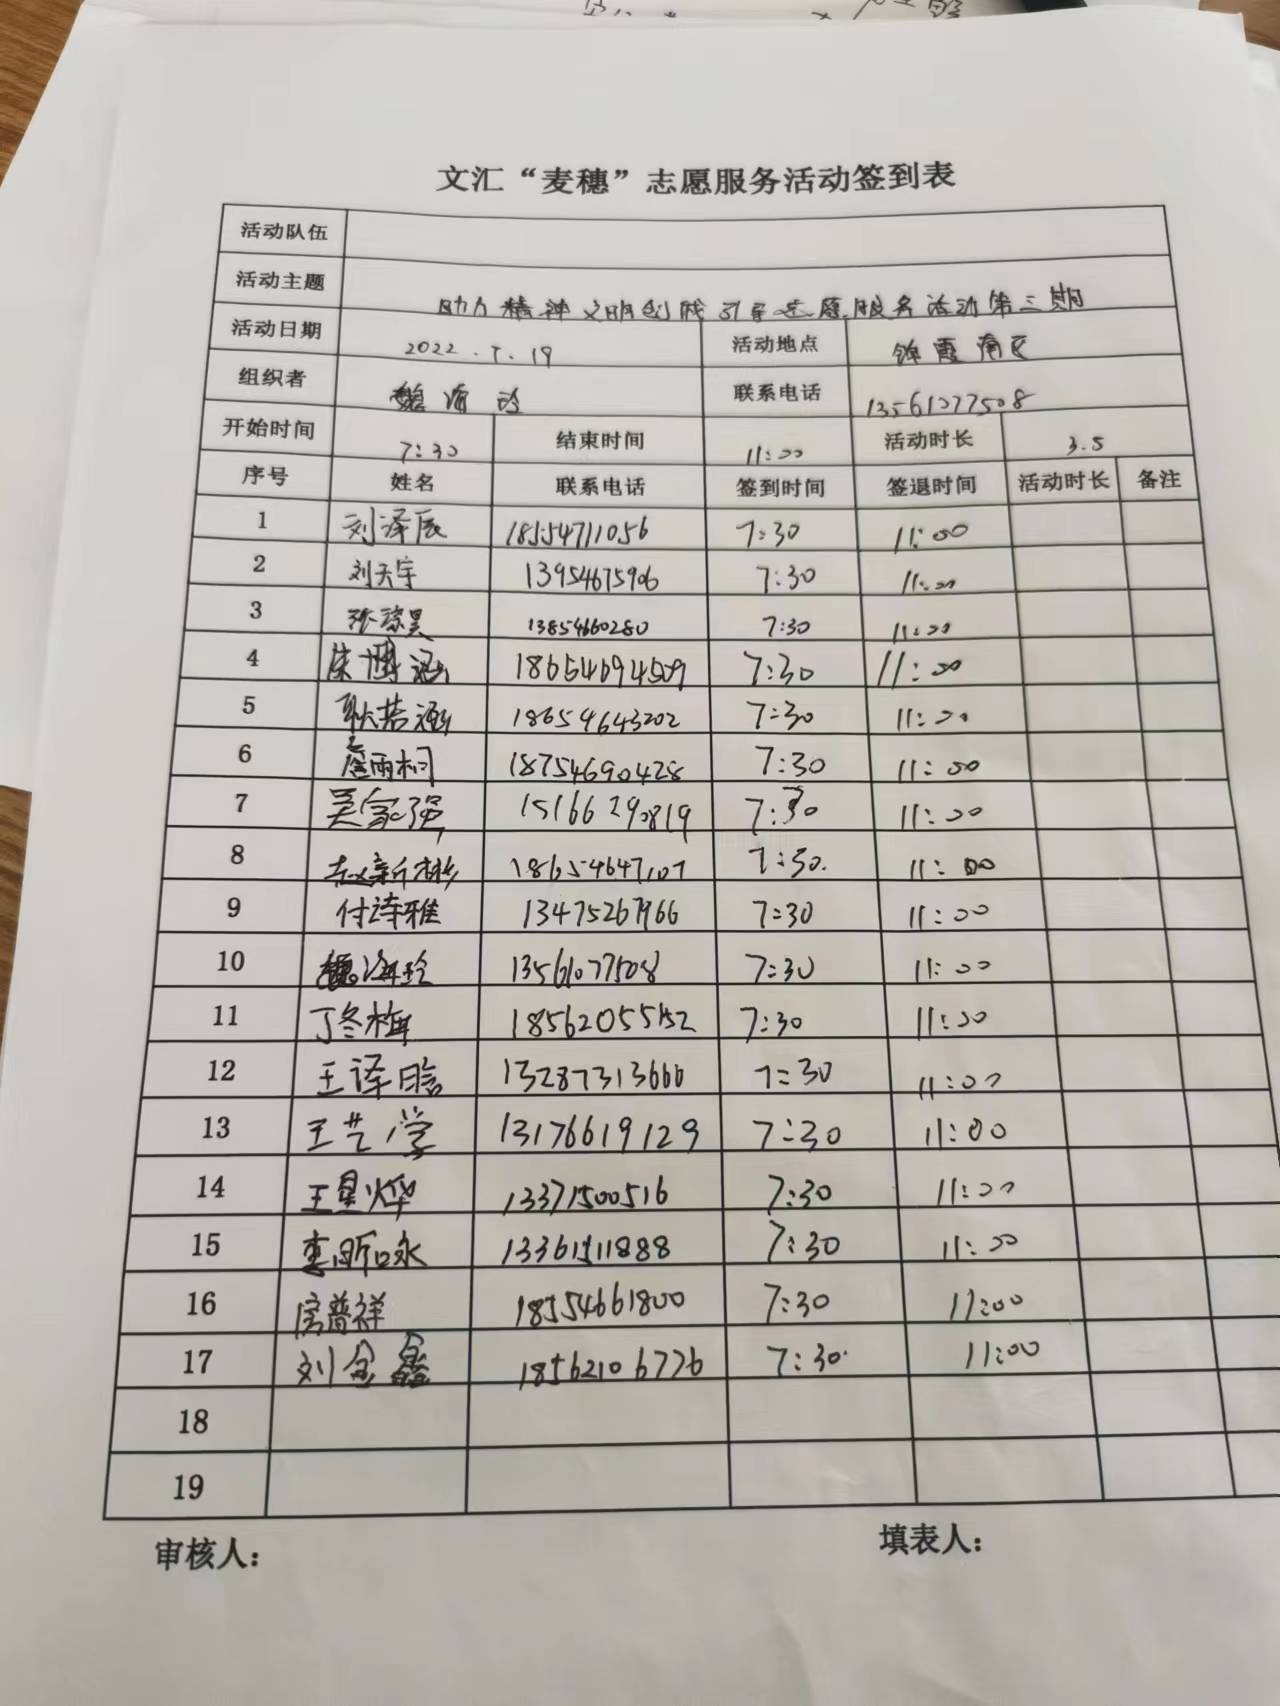 文汇“麦穗”志愿服务活动签到表
活动队伍
活动主题 助力精神文明创城 引导志愿服务活动第三期
活动日期 2022.7.19 活动地点 锦霞南区
组织者 魏海玲 联系电话 13561077508
开始时间 7:30 结束时间 11:00 活动时长 3.5
序号 姓名 联系电话 签到时间 签退时间 活动时长 备注
1 刘泽辰 18554711056 7:30 11:00
2 刘天宇 13954675906 7:30 11:00
3 张琮昊 13854660280 7:30 11:00
4 朱博涵 18654694509 7:30 11:00
5 耿菩涵 18654643202 7:30 11:00
6 詹雨桐 18754690428 7:30 11:00
7 吴家强 15166290819 7:30 11:00
8 赵新彬 18654647107 7:30. 11:00
9 付诗雅 13475267966 7:30 11:00
10 魏海玲 13561077508 7:30 11:00
11 丁冬梅 18562055152 7:30 11:00
12 王译晗 13287313660 7:30 11:00
13 王艺学 13176619129 7:30 11:00
14 王星烨 13371500516 7:30 11:00
15 李昕咏 13361511888 7:30 11:00
16 房普祥 18554661800 7:30 11:00
17 刘金鑫 18562106776 7:30. 11:00
18
19
审核人： 填表人：